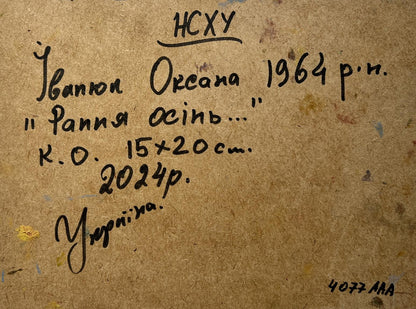 НСХУ
Іванюк Оксана 1964 р.н.
"Рання осінь..."
К.О. 15×20 см.
2024р.
Україна.
4077 ААА